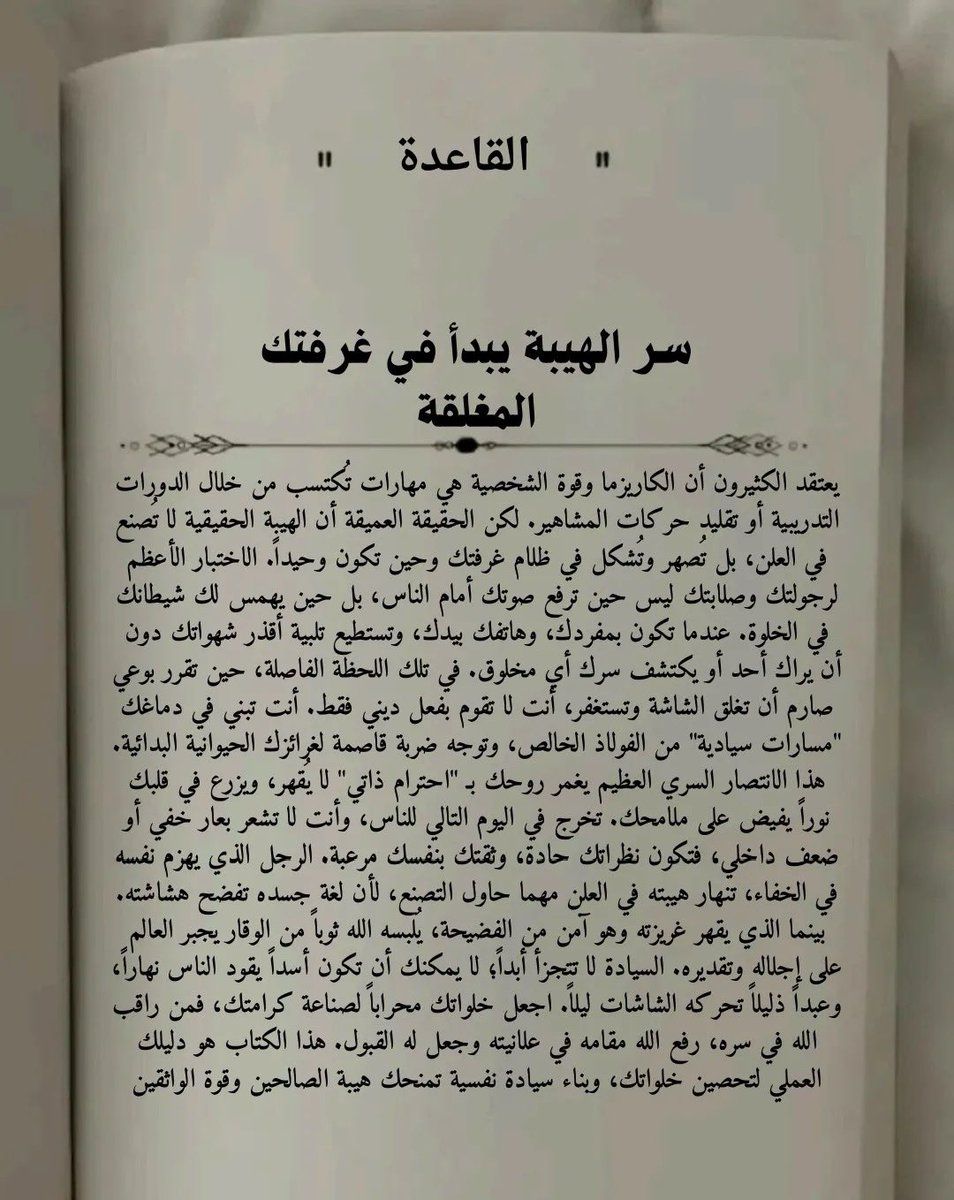 " القاعدة "
سر الهيبة يبدأ في غرفتك
المغلقة
يعتقد الكثيرون أن الكاريزما وقوة الشخصية هي مهارات تُكتسب من خلال الدورات
التدريبية أو تقليد حركات المشاهير. لكن الحقيقة العميقة أن الهيبة الحقيقية لا تُصنع
في العلن، بل تُصهر وتُشكل في ظلام غرفتك وحين تكون وحيداً. الاختبار الأعظم
لرجولتك وصلابتك ليس حين ترفع صوتك أمام الناس، بل حين يهمس لك شيطانك
في الخلوة. عندما تكون بمفردك، وهاتفك بيدك، وتستطيع تلبية أقذر شهواتك دون
أن يراك أحد أو يكتشف سرك أي مخلوق. في تلك اللحظة الفاصلة، حين تقرر بوعي
صارم أن تغلق الشاشة وتستغفر، أنت لا تقوم بفعل ديني فقط. أنت تبني في دماغك
"مسارات سيادية" من الفولاذ الخالص، وتوجه ضربة قاصمة لغرائزك الحيوانية البدائية.
هذا الانتصار السري العظيم يغمر روحك بـ "احترام ذاتي" لا يُقهر، ويزرع في قلبك
نوراً يفيض على ملامحك. تخرج في اليوم التالي للناس، وأنت لا تشعر بعار خفي أو
ضعف داخلي، فتكون نظراتك حادة، وثقتك بنفسك مرعبة. الرجل الذي يهزم نفسه
في الخفاء، تنهار هيبته في العلن مهما حاول التصنع، لأن لغة جسده تفضح هشاشته.
بينما الذي يقهر غريزته وهو آمن من الفضيحة، يُلبسه الله ثوباً من الوقار يجبر العالم
على إجلاله وتقديره. السيادة لا تتجزأ أبداً؛ لا يمكنك أن تكون أسداً يقود الناس نهاراً،
وعبداً ذليلاً تحركه الشاشات ليلاً. اجعل خلواتك محراباً لصناعة كرامتك، فمن راقب
الله في سره، رفع الله مقامه في علانيته وجعل له القبول. هذا الكتاب هو دليلك
العملي لتحصين خلواتك، وبناء سيادة نفسية تمنحك هيبة الصالحين وقوة الواثقين